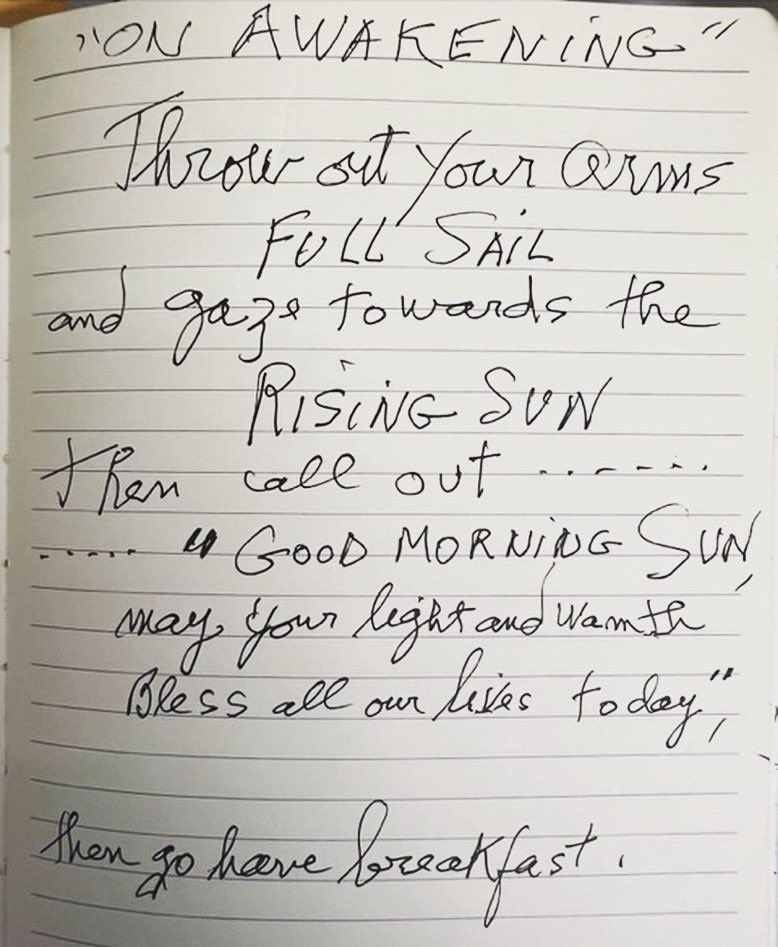 "ON AWAKENING"
Throw out your arms
FULL SAIL
and gaze towards the
RISING SUN
then call out .......
..... "GOOD MORNING SUN,
may your light and warmth
Bless all our lives today",
then go have breakfast.